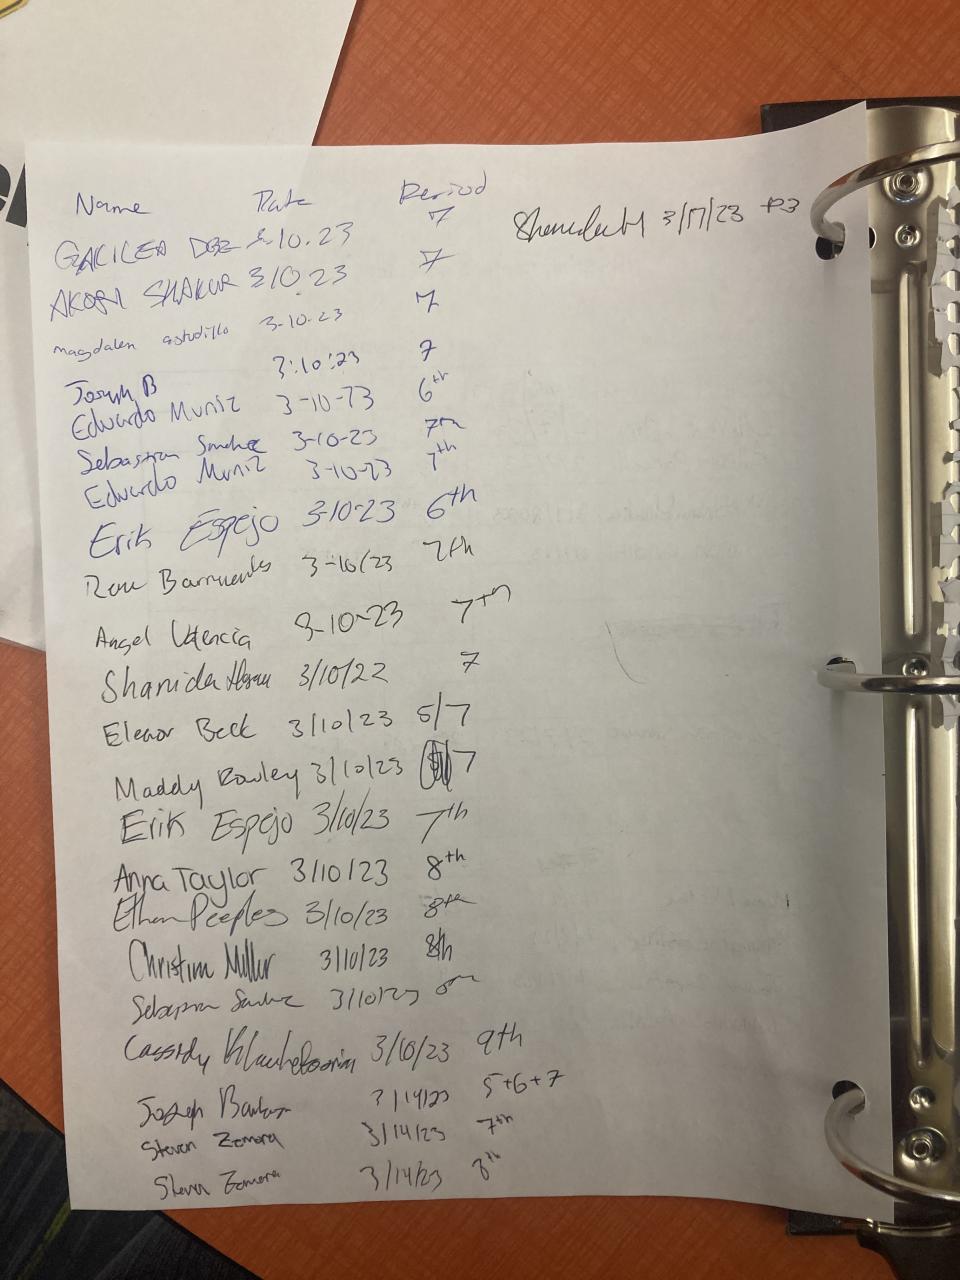 Name Date Period
GALILEA DGZ 3.10.23 7
AKORI SHAKUR 3/10.23 7
magdalen astudillo 3-10.23 7
Joseph B 3:10:23 7
Eduardo Muniz 3-10-23 6th
Sebastian Sanchez 3-10-23 7th
Eduardo Muniz 3-10-23 7th
Erik Espejo 3-10-23 6th
Rene Barrientos 3-10/23 7th
Angel Valencia 3-10-23 7th
Shanida 3/10/22 7
Eleanor Beck 3/10/23 5/7
Maddy Rowley 3/10/23 7
Erik Espejo 3/10/23 7th
Anna Taylor 3/10/23 8th
Ethan Peeples 3/10/23 8th
Christina Miller 3/10/23 8th
Sebastian Sanchez 3/10/23 8th
Cassidy 3/10/23 9th
Joseph 3/14/23 5+6+7
Steven Zamora 3/14/23 7th
Steven Zamora 3/14/23 8th
Shanida H 3/17/23 P3